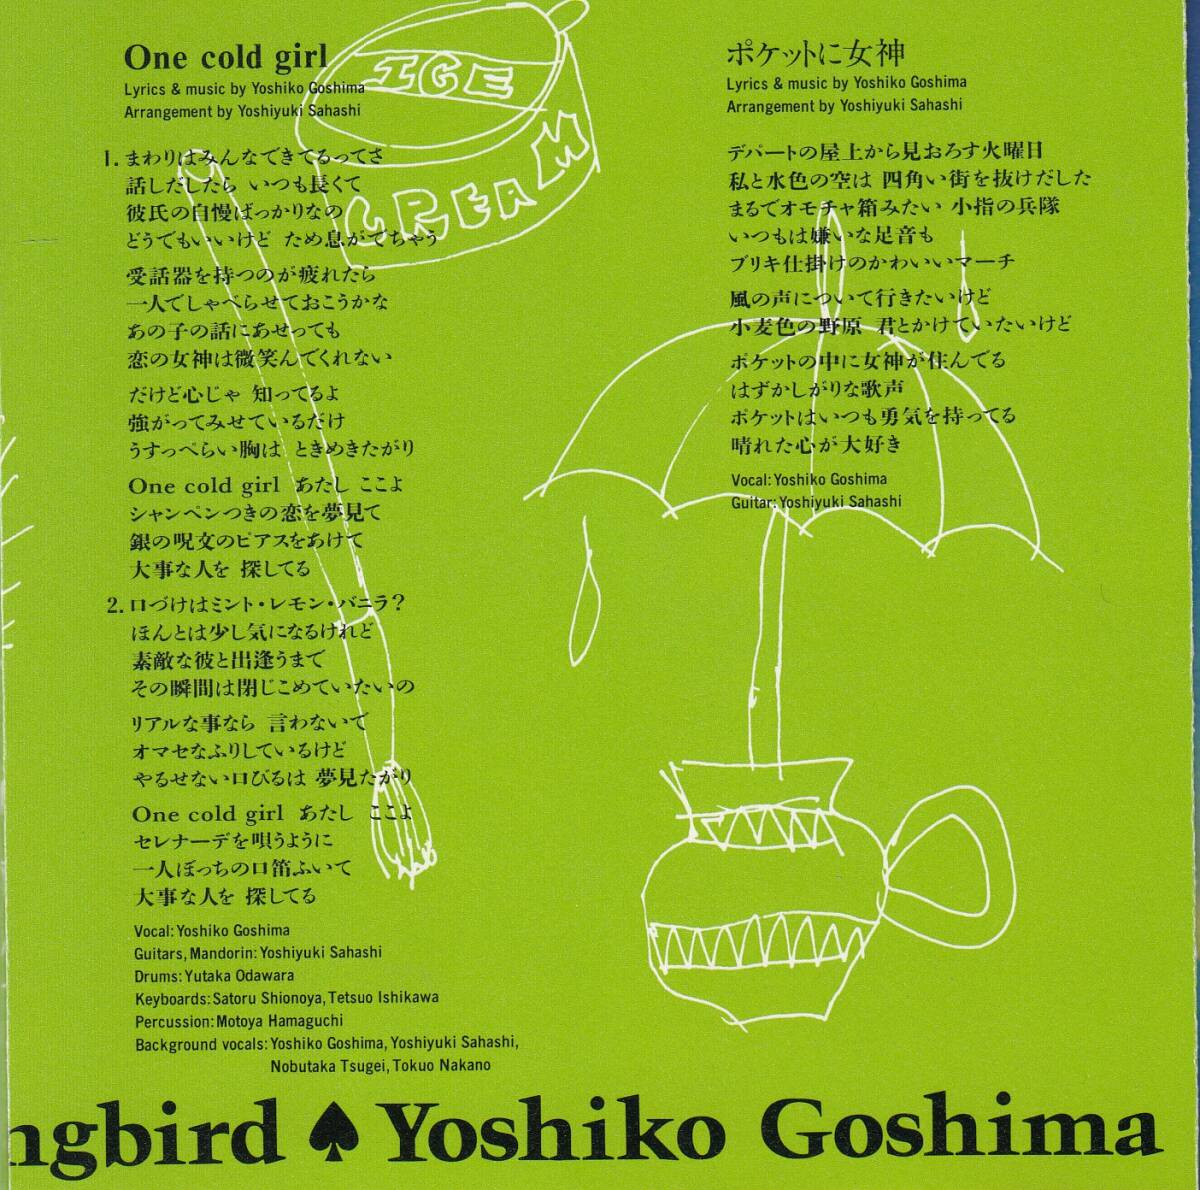 One cold girl
Lyrics & music by Yoshiko Goshima
Arrangement by Yoshiyuki Sahashi
1. まわりはみんなできてるってさ
話しだしたら いつも長くて
彼氏の自慢ばっかりなの
どうでもいいけど ため息がでちゃう
受話器を持つのが疲れたら
一人でしゃべらせておこうかな
あの子の話にあせっても
恋の女神は微笑んでくれない
だけど心じゃ 知ってるよ
強がってみせているだけ
うすっぺらい胸は ときめきたがり
One cold girl あたし ここよ
シャンペンつきの恋を夢見て
銀の呪文のピアスをあけて
大事な人を 探してる
2. 口づけはミント・レモン・バニラ?
ほんとは少し気になるけれど
素敵な彼と出逢うまで
その瞬間は閉じこめていたいの
リアルな事なら 言わないで
オマセなふりしているけど
やるせない口びるは 夢見たがり
One cold girl あたし ここよ
セレナーデを唄うように
一人ぼっちの口笛ふいて
大事な人を 探してる
Vocal: Yoshiko Goshima
Guitars, Mandorin: Yoshiyuki Sahashi
Drums: Yutaka Odawara
Keyboards: Satoru Shionoya, Tetsuo Ishikawa
Percussion: Motoya Hamaguchi
Background vocals: Yoshiko Goshima, Yoshiyuki Sahashi,
Nobutaka Tsugei, Tokuo Nakano
ポケットに女神
Lyrics & music by Yoshiko Goshima
Arrangement by Yoshiyuki Sahashi
デパートの屋上から見おろす火曜日
私と水色の空は 四角い街を抜けだした
まるでオモチャ箱みたい 小指の兵隊
いつもは嫌いな足音も
ブリキ仕掛けのかわいいマーチ
風の声について行きたいけど
小麦色の野原 君とかけていたいけど
ポケットの中に女神が住んでる
はずかしがりな歌声
ポケットはいつも勇気を持ってる
晴れた心が大好き
Vocal: Yoshiko Goshima
Guitar: Yoshiyuki Sahashi
ICE
CREAM
ngbird ♠ Yoshiko Goshima